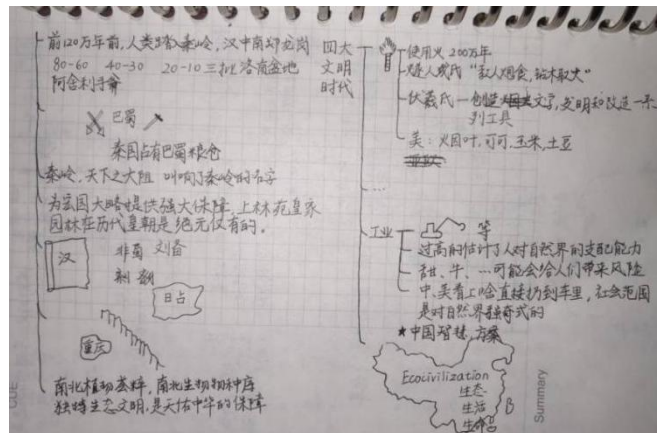 前120万年前,人类踏入秦岭,汉中南郑龙岗
80-60 40-30 20-10 三批 洛南盆地
阿舍利手斧
巴蜀
秦国占有巴蜀粮仓
秦岭,天下之大阻 叫响了秦岭的名字
为宏图大略提供强大保障,上林苑皇家
园林在历代皇朝是绝无仅有的。
汉
刘备
日占
重庆
南北植物荟粹,南北生物物种库
独特生态文明,是天佑中华的保障
四大
文明
时代
使用火 200万年
燧人氏 “教人熟食,钻木取火”
伏羲氏—创造文字,发明和改造一系
列工具
美:火田叶,可可,玉米,土豆
...
工业
等
过高的估计了人对自然界的支配能力
牛、…可能会给人们带来风险
中、美看上啥直接扔到车里,社会范围
是对自然界掠夺式的
★中国智慧、方案
Ecocivilization
生态
生活
生命
B
Summary